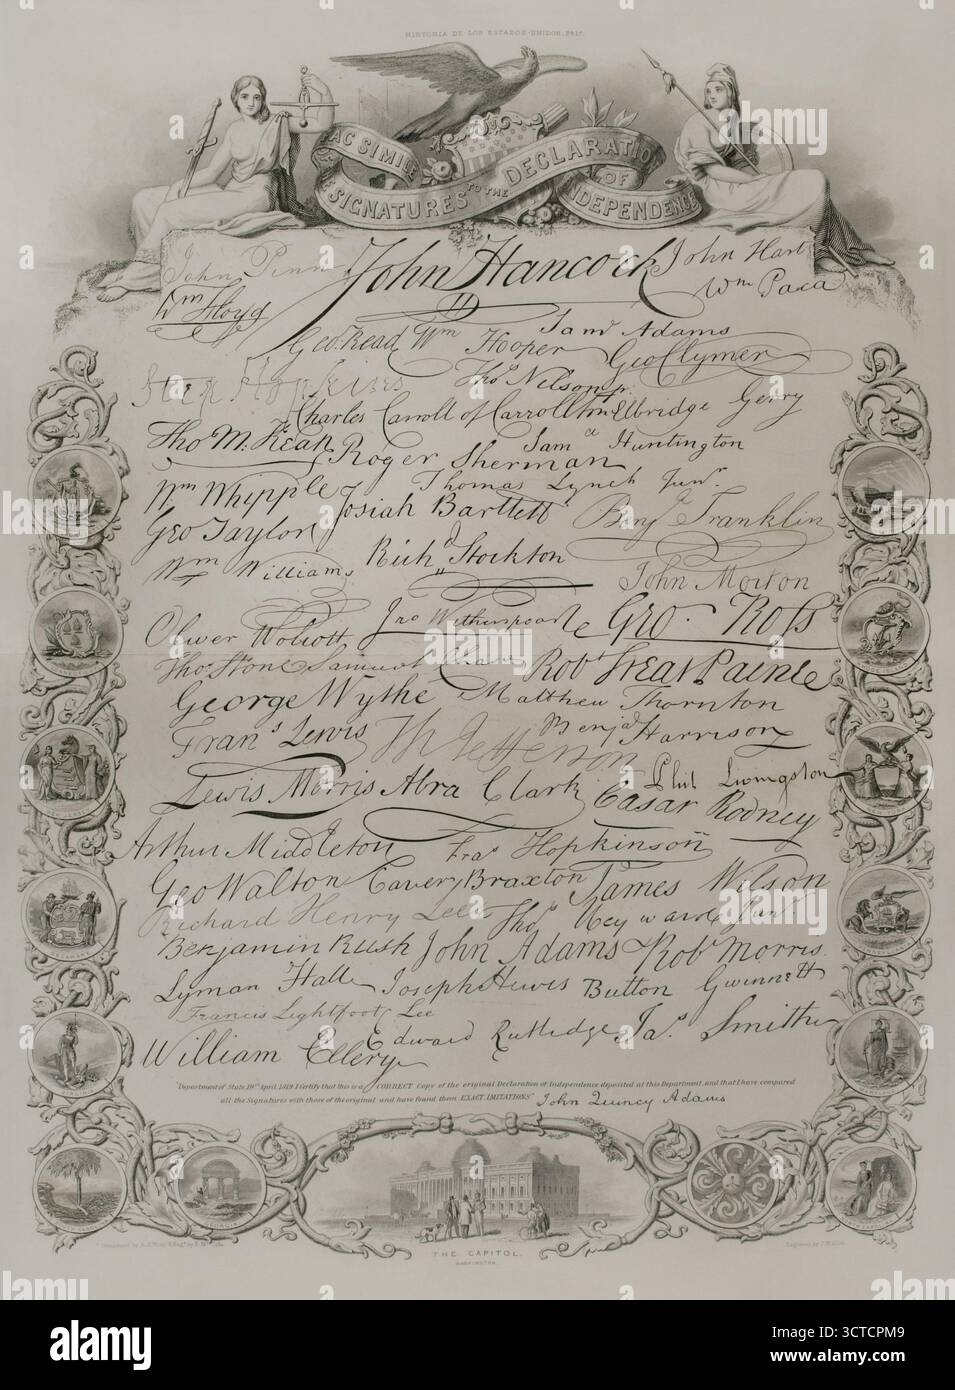 HISTORIA DE LOS ESTADOS-UNIDOS,
FAC SIMILE
SIGNATURES TO THE DECLARATION
OF
INDEPENDENCE
John Penn John Hancock John Hart
Wm Floyd Wm Paca
Geo. Read Wm Hooper Saml Adams
Geo Clymer
Step Hopkins Thos Nelson jr.
Charles Carroll of Carrollton Elbridge Gerry
Tho M: Kean Roger Sherman Saml Huntington
Wm Whipple Josiah Bartlett Thomas Lynch Junr.
Geo Taylor Benj Franklin
Wm Williams Richd Stockton John Morton
Oliver Wolcott Jno Witherspoon Geo. Ross
Thos Stone Samuel Chase Robt Treat Paine
George Wythe Matthew Thornton
Frans Lewis Th Jefferson Benja Harrison
Lewis Morris Abra Clark Phil Livingston
Cæsar Rodney
Arthur Middleton Fras Hopkinson
Geo Walton Carter Braxton James Wilson
Richard Henry Lee Thos Heyward Junr.
Benjamin Rush John Adams Robt Morris
Lyman Hall Joseph Hewes Button Gwinnett
Francis Lightfoot Lee
William Ellery Edward Rutledge Jas Smith
"Department of State, 19th April, 1819. I Certify that this is a CORRECT Copy of the original Declaration of Independence deposited at this Department, and that I have compared
all the Signatures with those of the original and have found them EXACT IMITATIONS" John Quincy Adams
THE CAPITOL.
WASHINGTON.
alamy
Image ID: 3CTCPM9
www.alamy.com